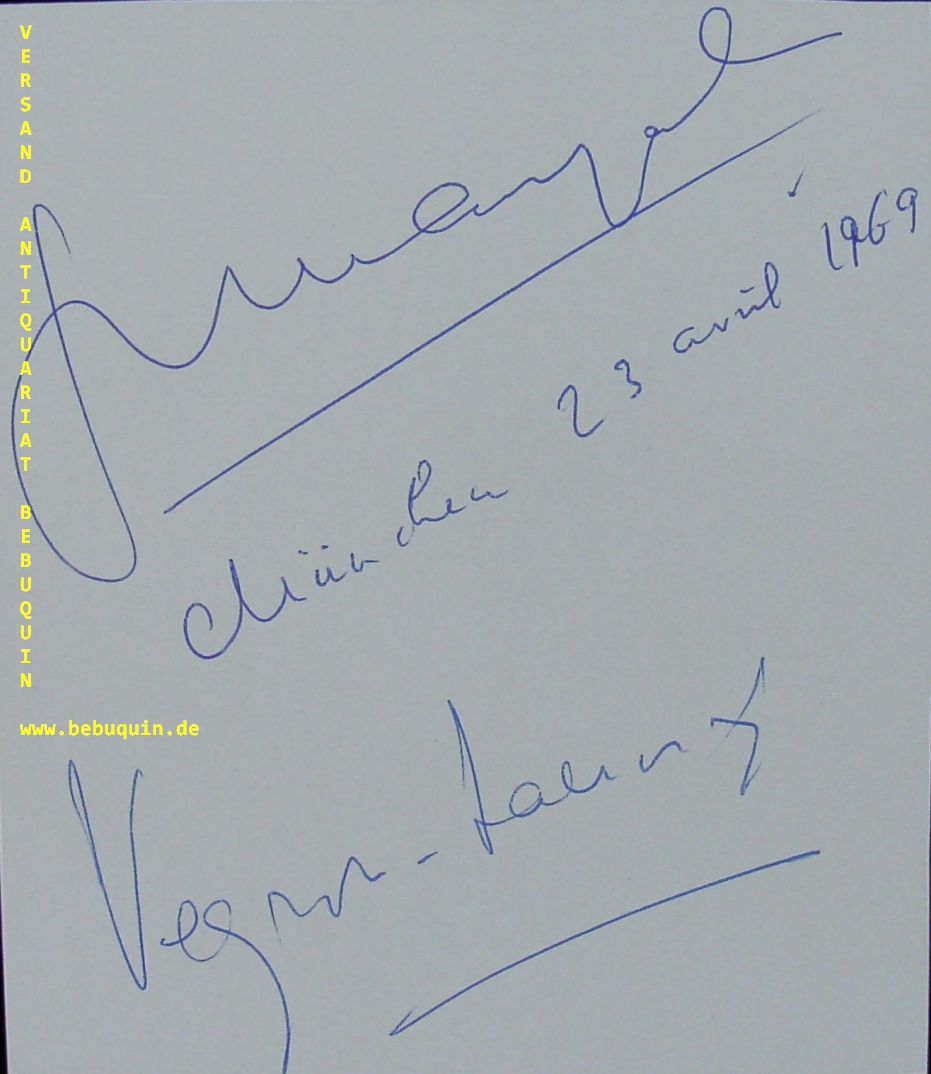 VERSAND ANTIQUARIAT BEBUQUIN
www.bebuquin.de
München 23 avril 1969
Veyron-Lacroix